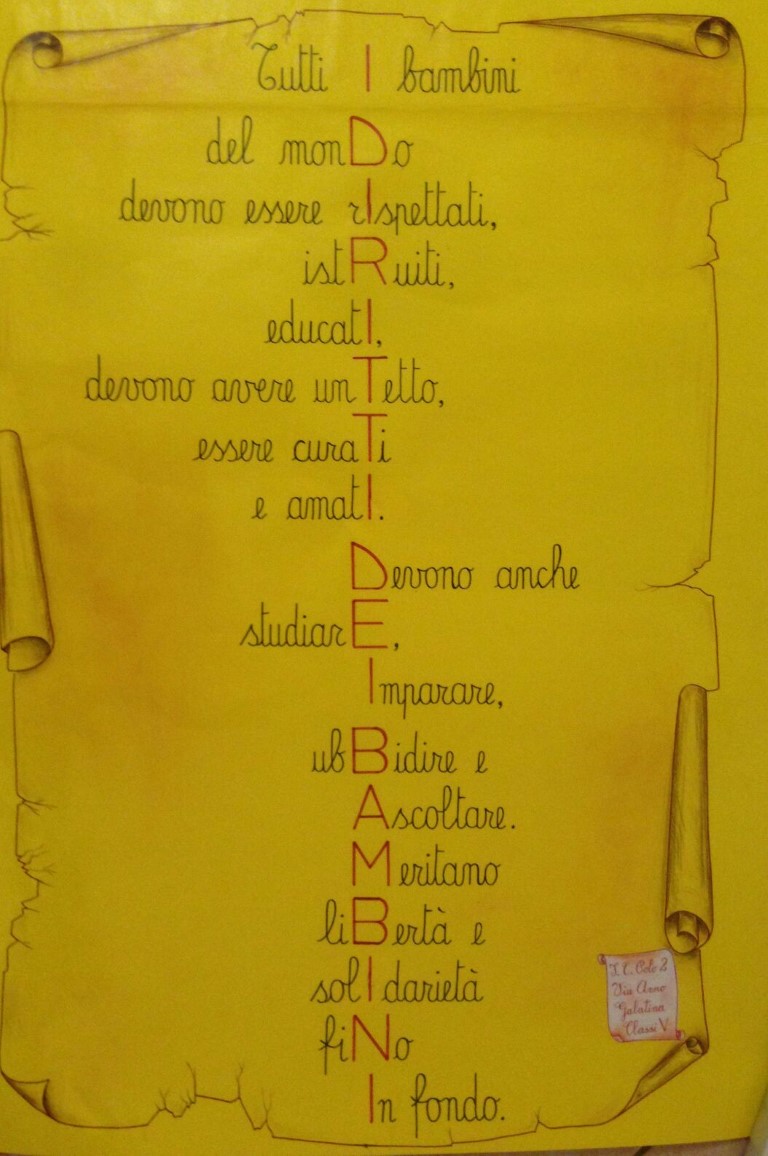 Tutti I bambini
del monDo
devono essere rIspettati,
istRuiti,
educatI,
devono avere un Tetto,
essere curaTi
e amatI.
Devono anche
studiarE,
Imparare,
ubBidire e
Ascoltare.
Meritano
liBertà e
solIdarietà
fiNo
In fondo.
I. C. Polo 2
Via Arno
Galatina
Classi V